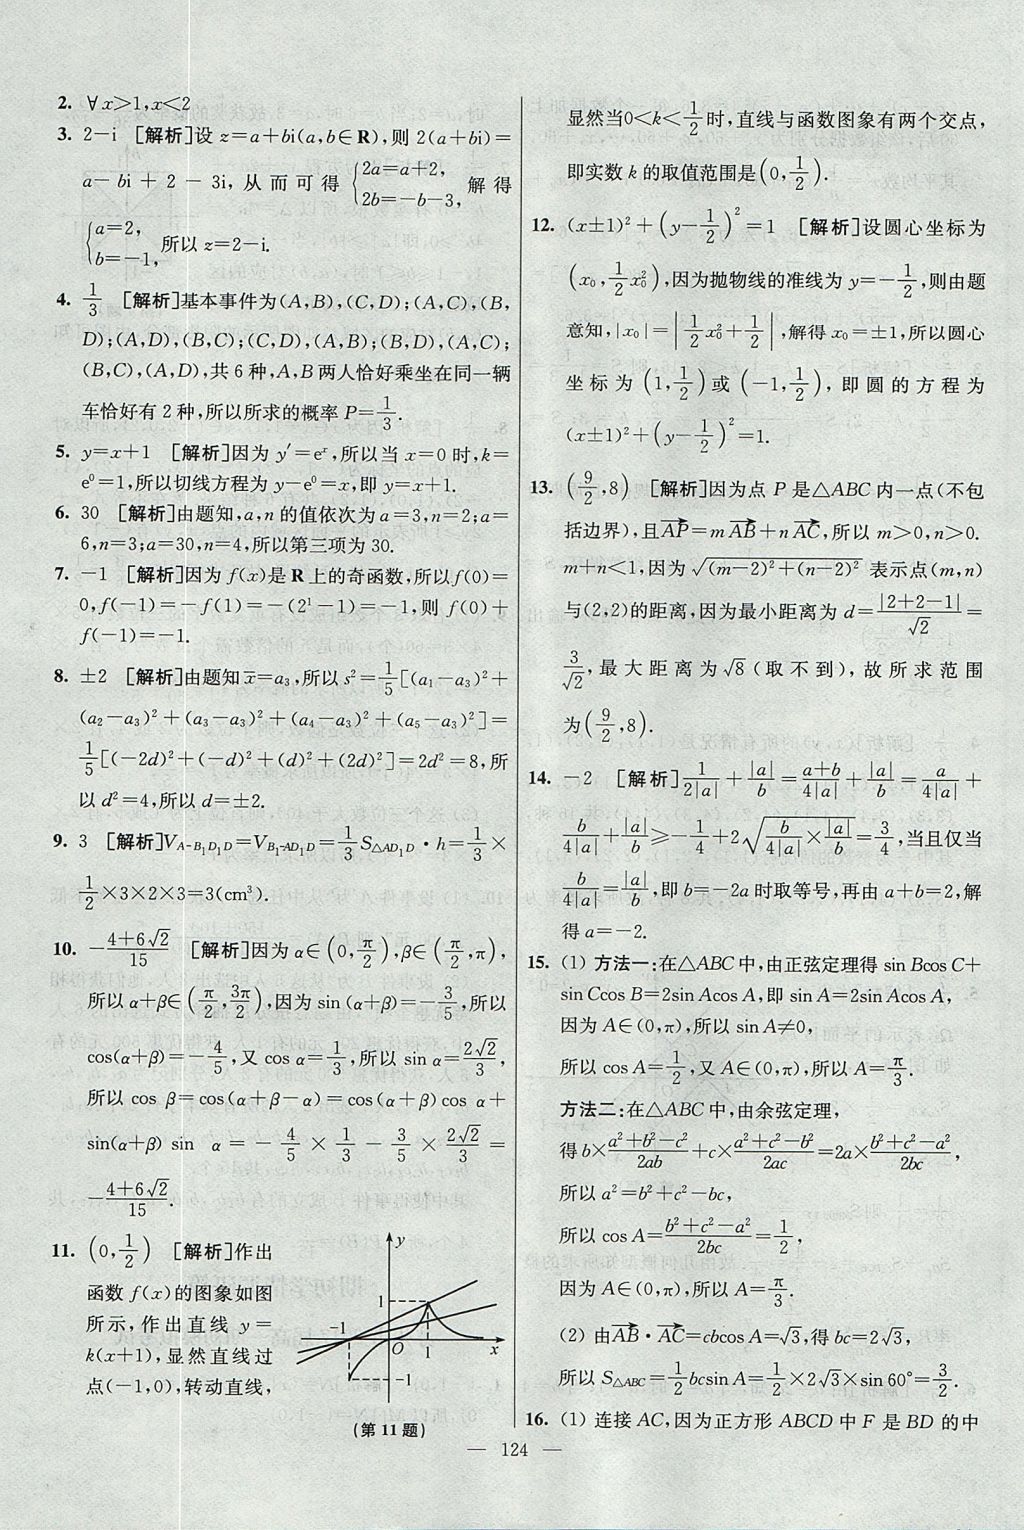 2. ∀x>1,x<2
3. 2-i [解析]设 z=a+bi(a,b∈R),则 2(a+bi)=
a-bi+2-3i,从而可得{2a=a+2, 2b=-b-3, 解得
{a=2, b=-1, 所以 z=2-i.
4. 1/3 [解析]基本事件为(A,B),(C,D);(A,C),(B,
D);(A,D),(B,C);(C,D),(A,B);(B,D),(A,C);
(B,C),(A,D),共 6 种,A,B 两人恰好乘坐在同一辆
车恰好有 2 种,所以所求的概率 P=1/3.
5. y=x+1 [解析]因为 y′=eˣ,所以当 x=0 时,k=
e⁰=1,所以切线方程为 y-e⁰=x,即 y=x+1.
6. 30 [解析]由题知,a,n 的值依次为 a=3,n=2;a=
6,n=3;a=30,n=4,所以第三项为 30.
7. -1 [解析]因为 f(x)是 R 上的奇函数,所以 f(0)=
0,f(-1)=-f(1)=-(2¹-1)=-1,则 f(0)+
f(-1)=-1.
8. ±2 [解析]由题知 x̄=a₃,所以 s²=1/5[(a₁-a₃)²+
(a₂-a₃)²+(a₃-a₃)²+(a₄-a₃)²+(a₅-a₃)²]=
1/5[(-2d)²+(-d)²+(d)²+(2d)²]=2d²=8,所
以 d²=4,所以 d=±2.
9. 3 [解析]V_{A-B₁D₁D}=V_{B₁-AD₁D}=1/3 S_{△AD₁D}·h=1/3×
1/2×3×2×3=3(cm³).
10. -(4+6√2)/15 [解析]因为 α∈(0,π/2),β∈(π/2,π),
所以 α+β∈(π/2,3π/2),因为 sin(α+β)=-3/5,所以
cos(α+β)=-4/5,又 cos α=1/3,所以 sin α=2√2/3,
所以 cos β=cos(α+β-α)=cos(α+β)cos α+
sin(α+β) sin α=-4/5×1/3-3/5×2√2/3=
-(4+6√2)/15.
11. (0,1/2) [解析]作出
函数 f(x)的图象如图
所示,作出直线 y=
k(x+1),显然直线过
点(-1,0),转动直线,
y
1
-1
O
1
x
-1
(第 11 题)
显然当0<k<1/2时,直线与函数图象有两个交点,
即实数 k 的取值范围是(0,1/2).
12. (x±1)²+(y-1/2)²=1 [解析]设圆心坐标为
(x₀,1/2x₀²),因为抛物线的准线为 y=-1/2,则由题
意知,|x₀|=|1/2x₀²+1/2|,解得 x₀=±1,所以圆心
坐标为(1,1/2)或(-1,1/2),即圆的方程为
(x±1)²+(y-1/2)²=1.
13. (9/2,8) [解析]因为点 P 是△ABC 内一点(不包
括边界),且AP→=mAB→+nAC→,所以 m>0,n>0.
m+n<1,因为√((m-2)²+(n-2)²)表示点(m,n)
与(2,2)的距离,因为最小距离为 d=|2+2-1|/√2=
3/√2,最大距离为√8(取不到),故所求范围
为(9/2,8).
14. -2 [解析]1/(2|a|)+|a|/b=(a+b)/(4|a|)+|a|/b=a/(4|a|)+
b/(4|a|)+|a|/b≥-1/4+2√(b/(4|a|)×|a|/b)=3/4,当且仅当
b/(4|a|)=|a|/b,即 b=-2a 时取等号,再由 a+b=2,解
得 a=-2.
15. (1) 方法一:在△ABC 中,由正弦定理得 sin Bcos C+
sin Ccos B=2sin Acos A,即 sin A=2sin Acos A,
因为 A∈(0,π),所以 sin A≠0,
所以 cos A=1/2,又 A∈(0,π),所以 A=π/3.
方法二:在△ABC 中,由余弦定理,
得 b×(a²+b²-c²)/2ab+c×(a²+c²-b²)/2ac=2a×(b²+c²-a²)/2bc,
所以 a²=b²+c²-bc,
所以 cos A=(b²+c²-a²)/2bc=1/2,
因为 A∈(0,π),所以 A=π/3.
(2) 由AB→·AC→=cbcos A=√3,得 bc=2√3,
所以 S_{△ABC}=1/2bcsin A=1/2×2√3×sin 60°=3/2.
16. (1) 连接 AC,因为正方形 ABCD 中 F 是 BD 的中
— 124 —